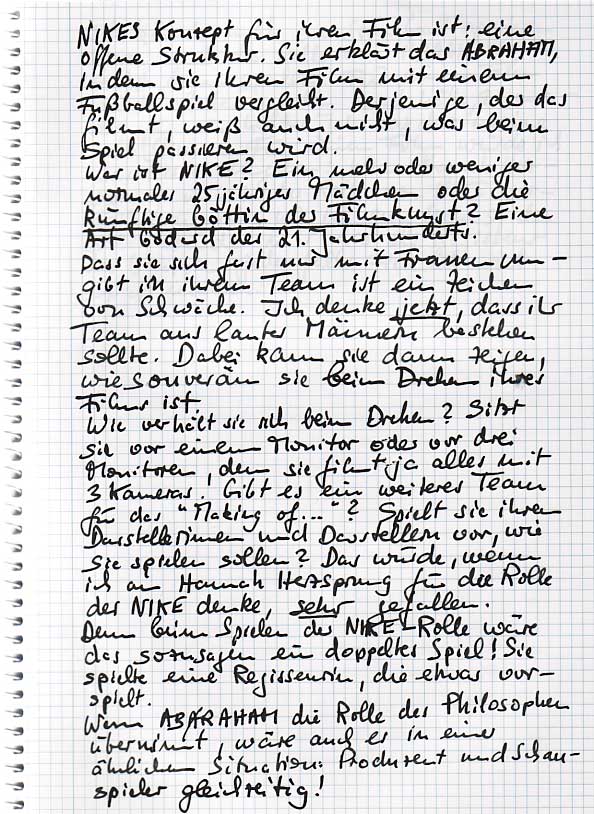 NIKES Konzept für ihren Film ist: eine
offene Struktur. Sie erklärt das ABRAHAM,
indem sie ihren Film mit einem
Fußballspiel vergleicht. Derjenige, der das
filmt, weiß auch nicht, was beim
Spiel passieren wird.
Wer ist NIKE? Ein mehr oder weniger
normales 25jähriges Mädchen oder die
künftige Göttin der Filmkunst? Eine
Art Godard des 21. Jahrhunderts.
Dass sie sich fast nur mit Frauen um-
gibt in ihrem Team ist ein Zeichen
von Schwäche. Ich denke jetzt, dass ihr
Team aus lauter Männern bestehen
sollte. Dabei kann sie dann zeigen,
wie souverän sie beim Drehen ihres
Films ist.
Wie verhält sie sich beim Drehen? Sitzt
sie vor einem Monitor oder vor drei
Monitoren, denn sie filmt ja alles mit
3 Kameras. Gibt es ein weiteres Team
für das "Making of..."? Spielt sie ihren
Darstellerinnen und Darstellern vor, wie
sie spielen sollen? Das würde, wenn
ich an Hannah Herzsprung für die Rolle
der NIKE denke, sehr gefallen.
Denn beim Spielen der NIKE-Rolle wäre
das sozusagen ein doppeltes Spiel! Sie
spielte eine Regisseurin, die etwas vor-
spielt.
Wenn ABARAHAM die Rolle des Philosophen
übernimmt, wäre auch er in einer
ähnlichen Situation: Produzent und Schau-
spieler gleichzeitig!